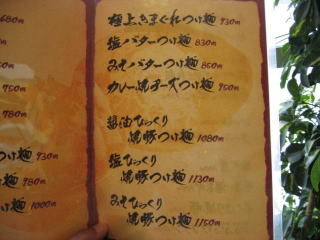 極上きまぐれつけ麺 930円
塩バターつけ麺 830円
みそバターつけ麺 850円
カレー焼チーズつけ麺 950円
醤油びっくり
焼豚つけ麺 1080円
塩びっくり
焼豚つけ麺 1130円
みそびっくり
焼豚つけ麺 1150円
680円
780円
980円
つけ麺 930円
つけ麺 980円
け麺 1000円